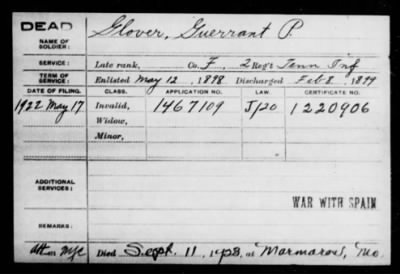 DEAD
NAME OF SOLDIER: Glover, Guerrant P.
SERVICE: Late rank, Co. F, 2 Reg't Tenn Inf
TERM OF SERVICE: Enlisted May 12, 1898 Discharged Feb 8, 1899
DATE OF FILING. CLASS. APPLICATION NO. LAW. CERTIFICATE NO.
1922 May 17 Invalid, 1467109 J5/20 1220906
Widow,
Minor,
ADDITIONAL SERVICES:
WAR WITH SPAIN
REMARKS:
Died Sept. 11, 1928, at Mo.